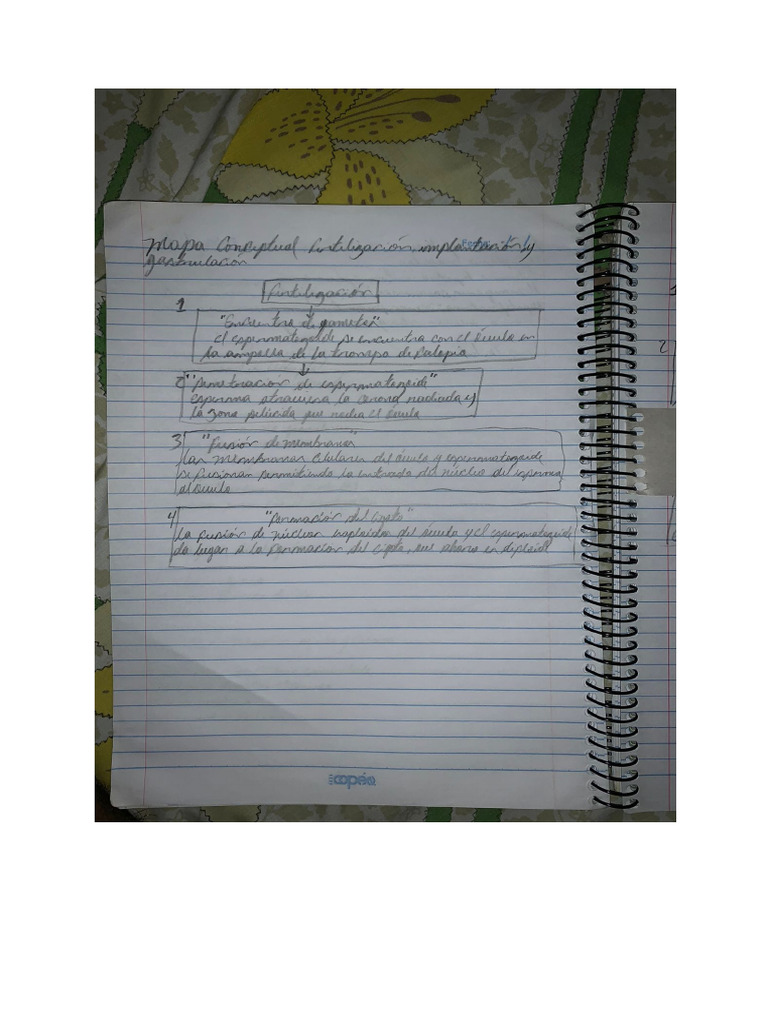 Mapa Conceptual fertilización, implantación y
gastrulación
Fertilización
1
"Encuentro de gametos"
el espermatozoide se encuentra con el óvulo en
la ampolla de la trompa de falopio
2 "Penetración de espermatozoide"
esperma atraviesa la corona radiada y
la zona pelúcida que rodea el óvulo
3 "Fusión de membranas"
Las membranas celulares del óvulo y espermatozoide
se fusionan permitiendo la entrada del núcleo de esperma
al óvulo
4 "Formación del cigoto"
la fusión de núcleos haploides del óvulo y el espermatozoide
da lugar a la formación del cigoto, que ahora es diploide
copán
2